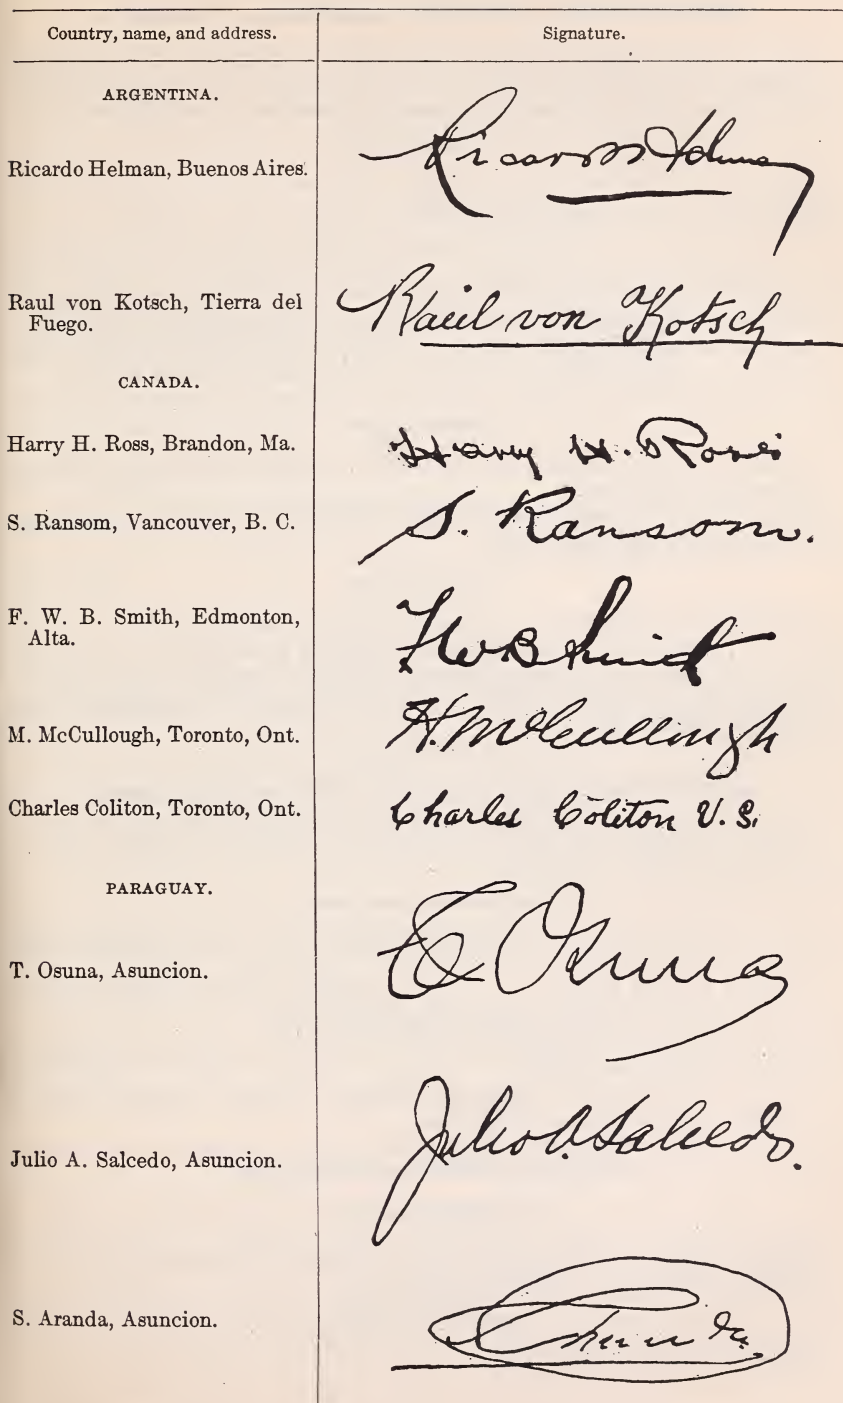 Country, name, and address. Signature.
ARGENTINA.
Ricardo Helman, Buenos Aires.
Raul von Kotsch, Tierra del
Raúl von Kotsch
Fuego.
CANADA.
Harry H. Ross, Brandon, Ma. Harry H. Ross
S. Ransom, Vancouver, B. C. S. Ransom.
F. W. B. Smith, Edmonton, FWB Smith
Alta.
M. McCullough, Toronto, Ont. H. McCullough
Charles Coliton, Toronto, Ont. Charles Coliton V. S.
PARAGUAY.
T. Osuna, Asuncion. Osuna
Julio A. Salcedo, Asuncion. Julio A. Salcedo.
S. Aranda, Asuncion.